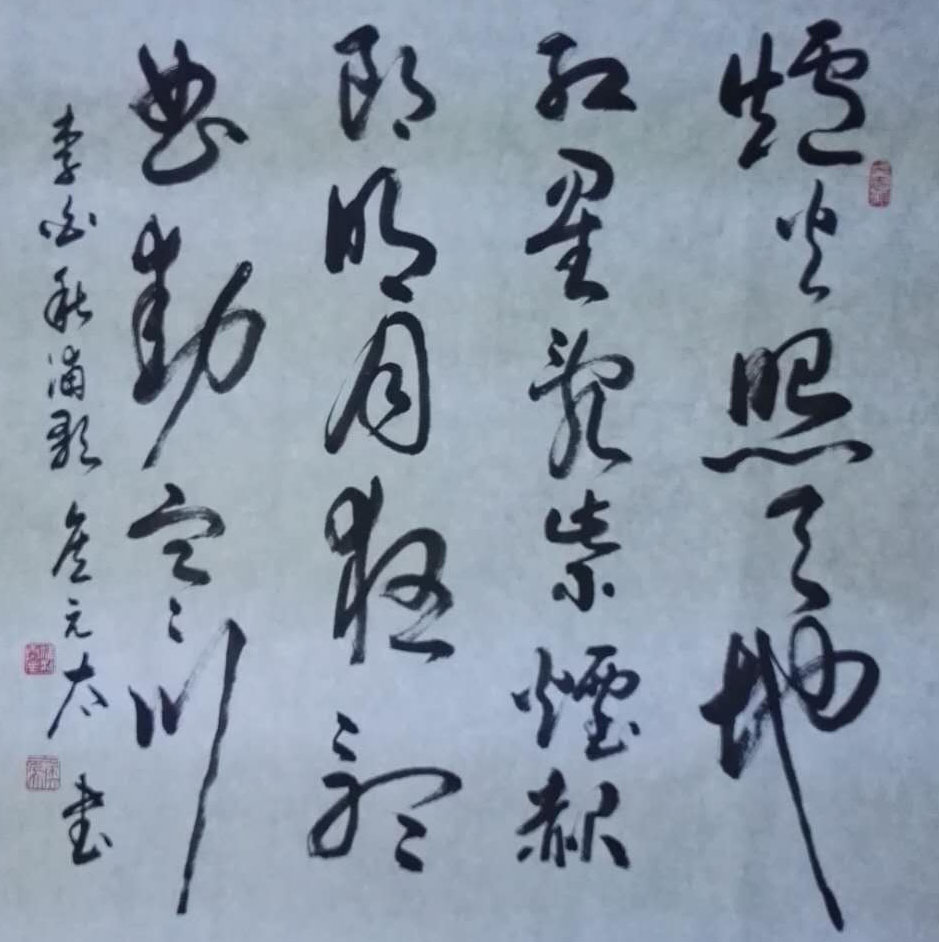 爐火照天地
紅星亂紫煙赧
郎明月夜歌
曲動寒川
李白秋浦歌 元太書